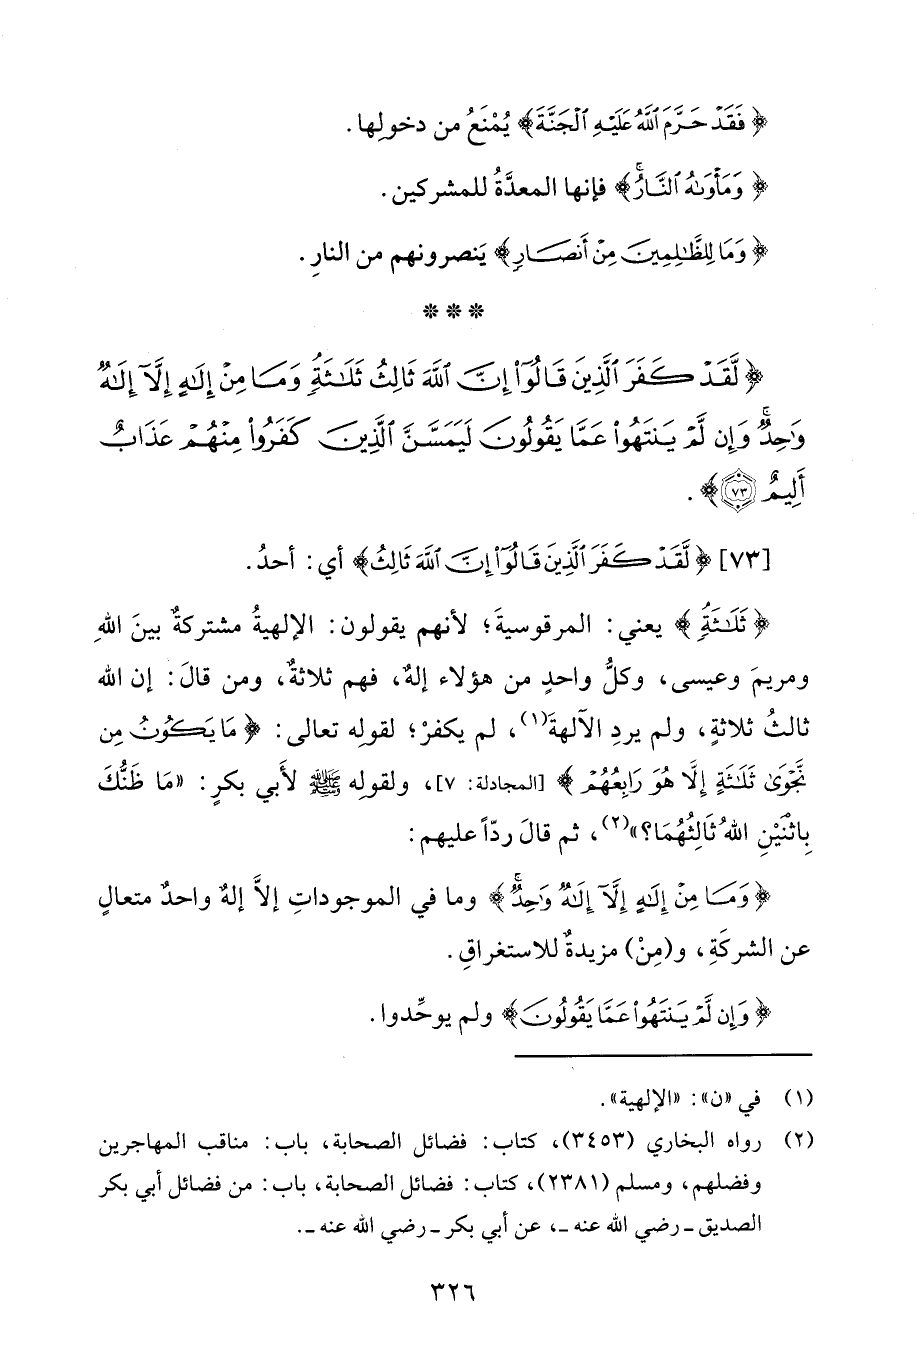 ﴿فَقَدْ حَرَّمَ ٱللَّهُ عَلَيْهِ ٱلْجَنَّةَ﴾ يُمْنَعُ من دخولِها.
﴿وَمَأْوَىٰهُ ٱلنَّارُ ۖ﴾ فإنها المعدَّةُ للمشركين.
﴿وَمَا لِلظَّـٰلِمِينَ مِنْ أَنصَارٍ﴾ يَنصرونهم من النارِ.
* * *
﴿لَّقَدْ كَفَرَ ٱلَّذِينَ قَالُوٓا۟ إِنَّ ٱللَّهَ ثَالِثُ ثَلَـٰثَةٍ ۘ وَمَا مِنْ إِلَـٰهٍ إِلَّآ إِلَـٰهٌ
وَٰحِدٌ ۚ وَإِن لَّمْ يَنتَهُوا۟ عَمَّا يَقُولُونَ لَيَمَسَّنَّ ٱلَّذِينَ كَفَرُوا۟ مِنْهُمْ عَذَابٌ
أَلِيمٌ ٧٣﴾.
[٧٣] ﴿لَّقَدْ كَفَرَ ٱلَّذِينَ قَالُوٓا۟ إِنَّ ٱللَّهَ ثَالِثُ﴾ أي: أحدُ.
﴿ثَلَـٰثَةٍ ۘ﴾ يعني: المرقوسيةَ؛ لأنهم يقولون: الإلهيةُ مشتركةٌ بينَ اللهِ
ومريمَ وعيسى، وكلُّ واحدٍ من هؤلاء إلهٌ، فهم ثلاثةٌ، ومن قالَ: إن الله
ثالثُ ثلاثةٍ، ولم يردِ الآلهةَ(١)، لم يكفرْ؛ لقولِه تعالى: ﴿مَا يَكُونُ مِن
نَّجْوَىٰ ثَلَـٰثَةٍ إِلَّا هُوَ رَابِعُهُمْ﴾ [المجادلة: ٧]، ولقولِه ﷺ لأبي بكرٍ: «مَا ظَنُّكَ
بِاثْنَيْنِ اللهُ ثَالِثُهُمَا؟»(٢)، ثم قالَ ردّاً عليهم:
﴿وَمَا مِنْ إِلَـٰهٍ إِلَّآ إِلَـٰهٌ وَٰحِدٌ ۚ﴾ وما في الموجوداتِ إلاَّ إلهٌ واحدٌ متعالٍ
عن الشركَةِ، و(مِنْ) مزيدةٌ للاستغراقِ.
﴿وَإِن لَّمْ يَنتَهُوا۟ عَمَّا يَقُولُونَ﴾ ولم يوحِّدوا.
(١) في «ن»: «الإلهية».
(٢) رواه البخاري (٣٤٥٣)، كتاب: فضائل الصحابة، باب: مناقب المهاجرين
وفضلهم، ومسلم (٢٣٨١)، كتاب: فضائل الصحابة، باب: من فضائل أبي بكر
الصديق ـ رضي الله عنه ـ، عن أبي بكر ـ رضي الله عنه ـ.
٣٢٦